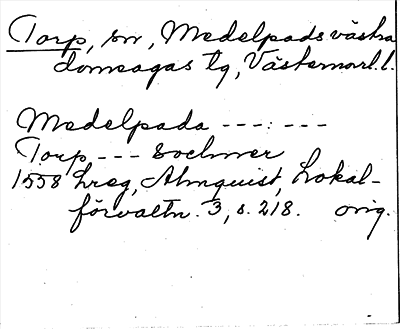 Torp, sn, Medelpads västra
domsagas tg, Västernorrl. l.
Medelpada ---:---
Torp --- Sochner
1558 hreg, Almquist, Lokal-
förvaltn. 3, s. 218. orig.